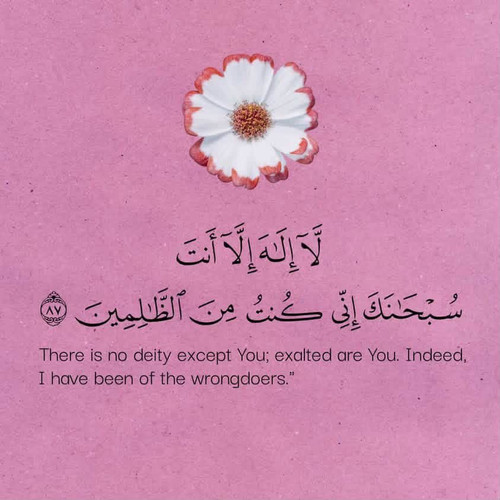 لَّآ إِلَـٰهَ إِلَّآ أَنتَ
سُبْحَـٰنَكَ إِنِّى كُنتُ مِنَ ٱلظَّـٰلِمِينَ ٨٧
There is no deity except You; exalted are You. Indeed,
I have been of the wrongdoers."